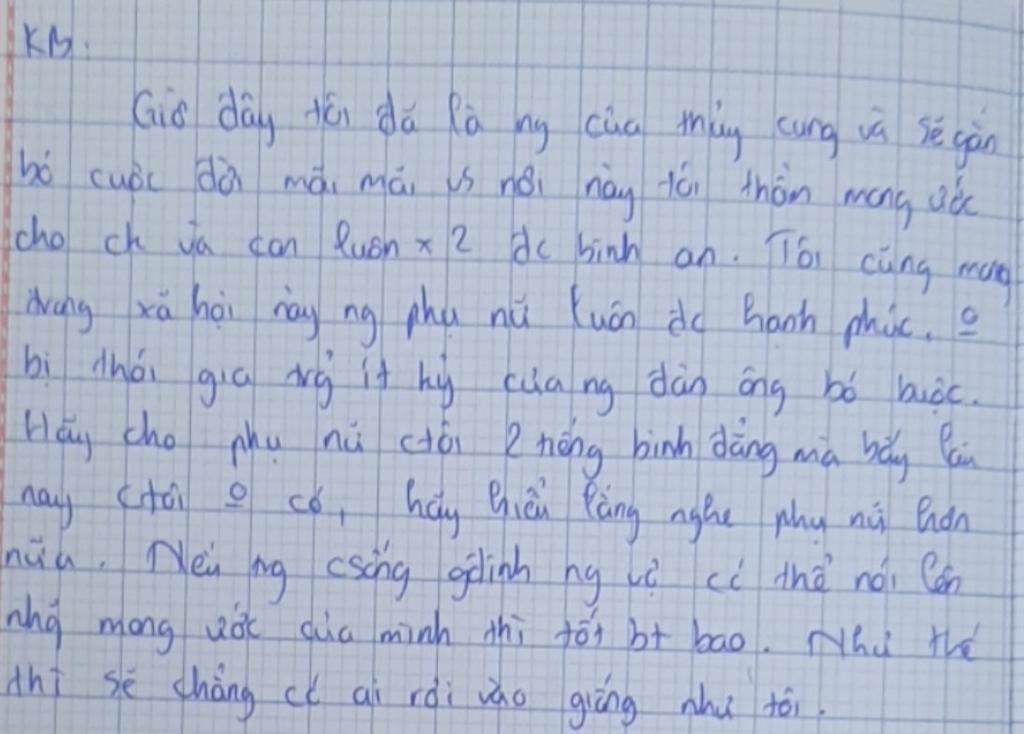 KB:
Giờ đây tôi đã là ng của thủy cung và sẽ gắn
bó cuộc đời mãi mãi vs nơi này tôi thầm mong ước
cho ch và con luôn x 2 đc bình an. Tôi cũng mong
trong xã hội này ng phụ nữ luôn đc hạnh phúc. o
bị thói gia trg ít kỷ của ng đàn ông bó buộc.
Hãy cho phụ nữ ctôi 2 tiếng bình đẳng mà bấy lâu
nay ctôi o có, hãy hiểu lắng nghe phụ nữ hơn
nữa. Nếu ng csống gđình ng vợ có thể nói lên
nhg mong ước của mình thì tốt bt bao. Như thế
thì sẽ chẳng có ai rơi vào giống như tôi.